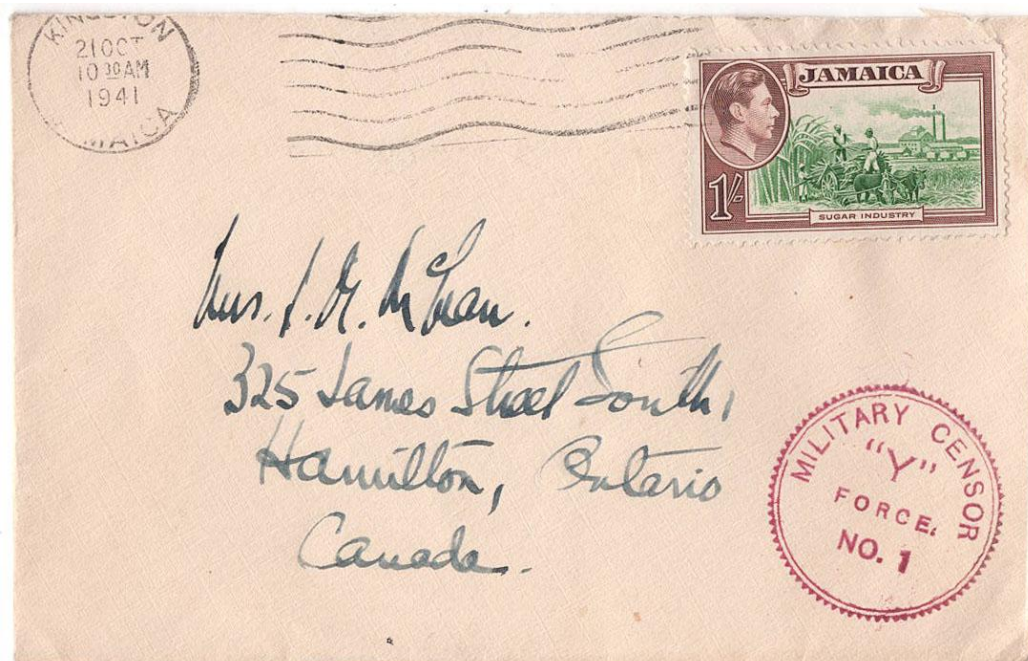 KINGSTON
21 OCT
10 30 AM
1941
JAMAICA
JAMAICA
1/-
SUGAR INDUSTRY
Mrs.
325 James Street South,
Hamilton, Ontario
Canada.
MILITARY CENSOR
"Y"
FORCE.
NO. 1